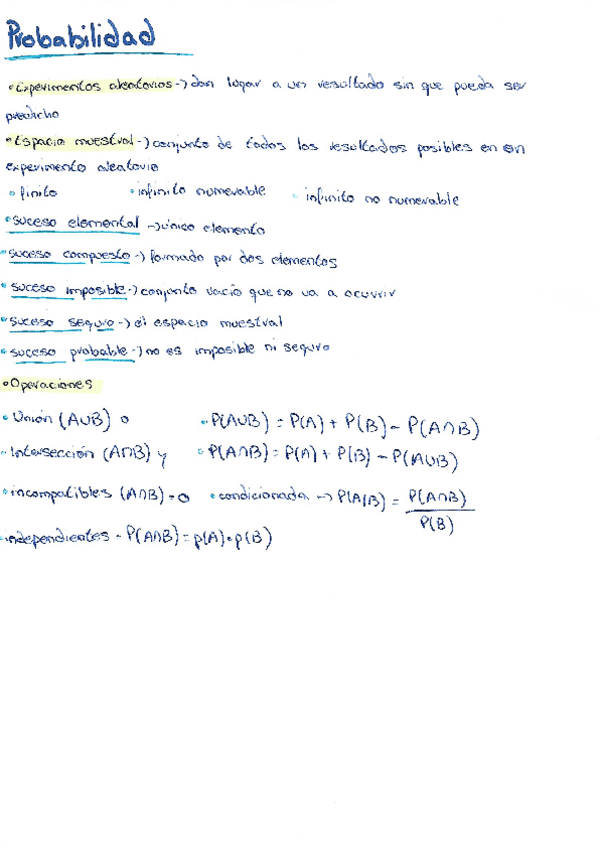 Probabilidad
• Experimentos aleatorios -> dan lugar a un resultado sin que pueda ser
predicho
• Espacio muestral -> conjunto de todos los resultados posibles en un
experimento aleatorio
• finito • infinito numerable • infinito no numerable
• suceso elemental -> único elemento
• suceso compuesto -> formado por dos elementos
• suceso imposible -> conjunto vacío que no va a ocurrir
• suceso seguro -> el espacio muestral
• suceso probable -> no es imposible ni seguro
• Operaciones
• Unión (A∪B) o • P(A∪B) = P(A) + P(B) - P(A∩B)
• Intersección (A∩B) y • P(A∩B) = P(A) + P(B) - P(A∪B)
• incompatibles (A∩B) = 0 • condicionada -> P(A/B) = P(A∩B)
P(B)
• independientes - P(A∩B) = p(A) • p(B)